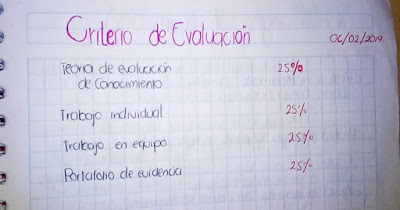 Criterio de Evaluación
06/02/2019
Teoria de evaluación 25%
de conocimiento
Trabajo individual 25%
Trabajo en equipo 25%
Portafolio de evidencia 25%